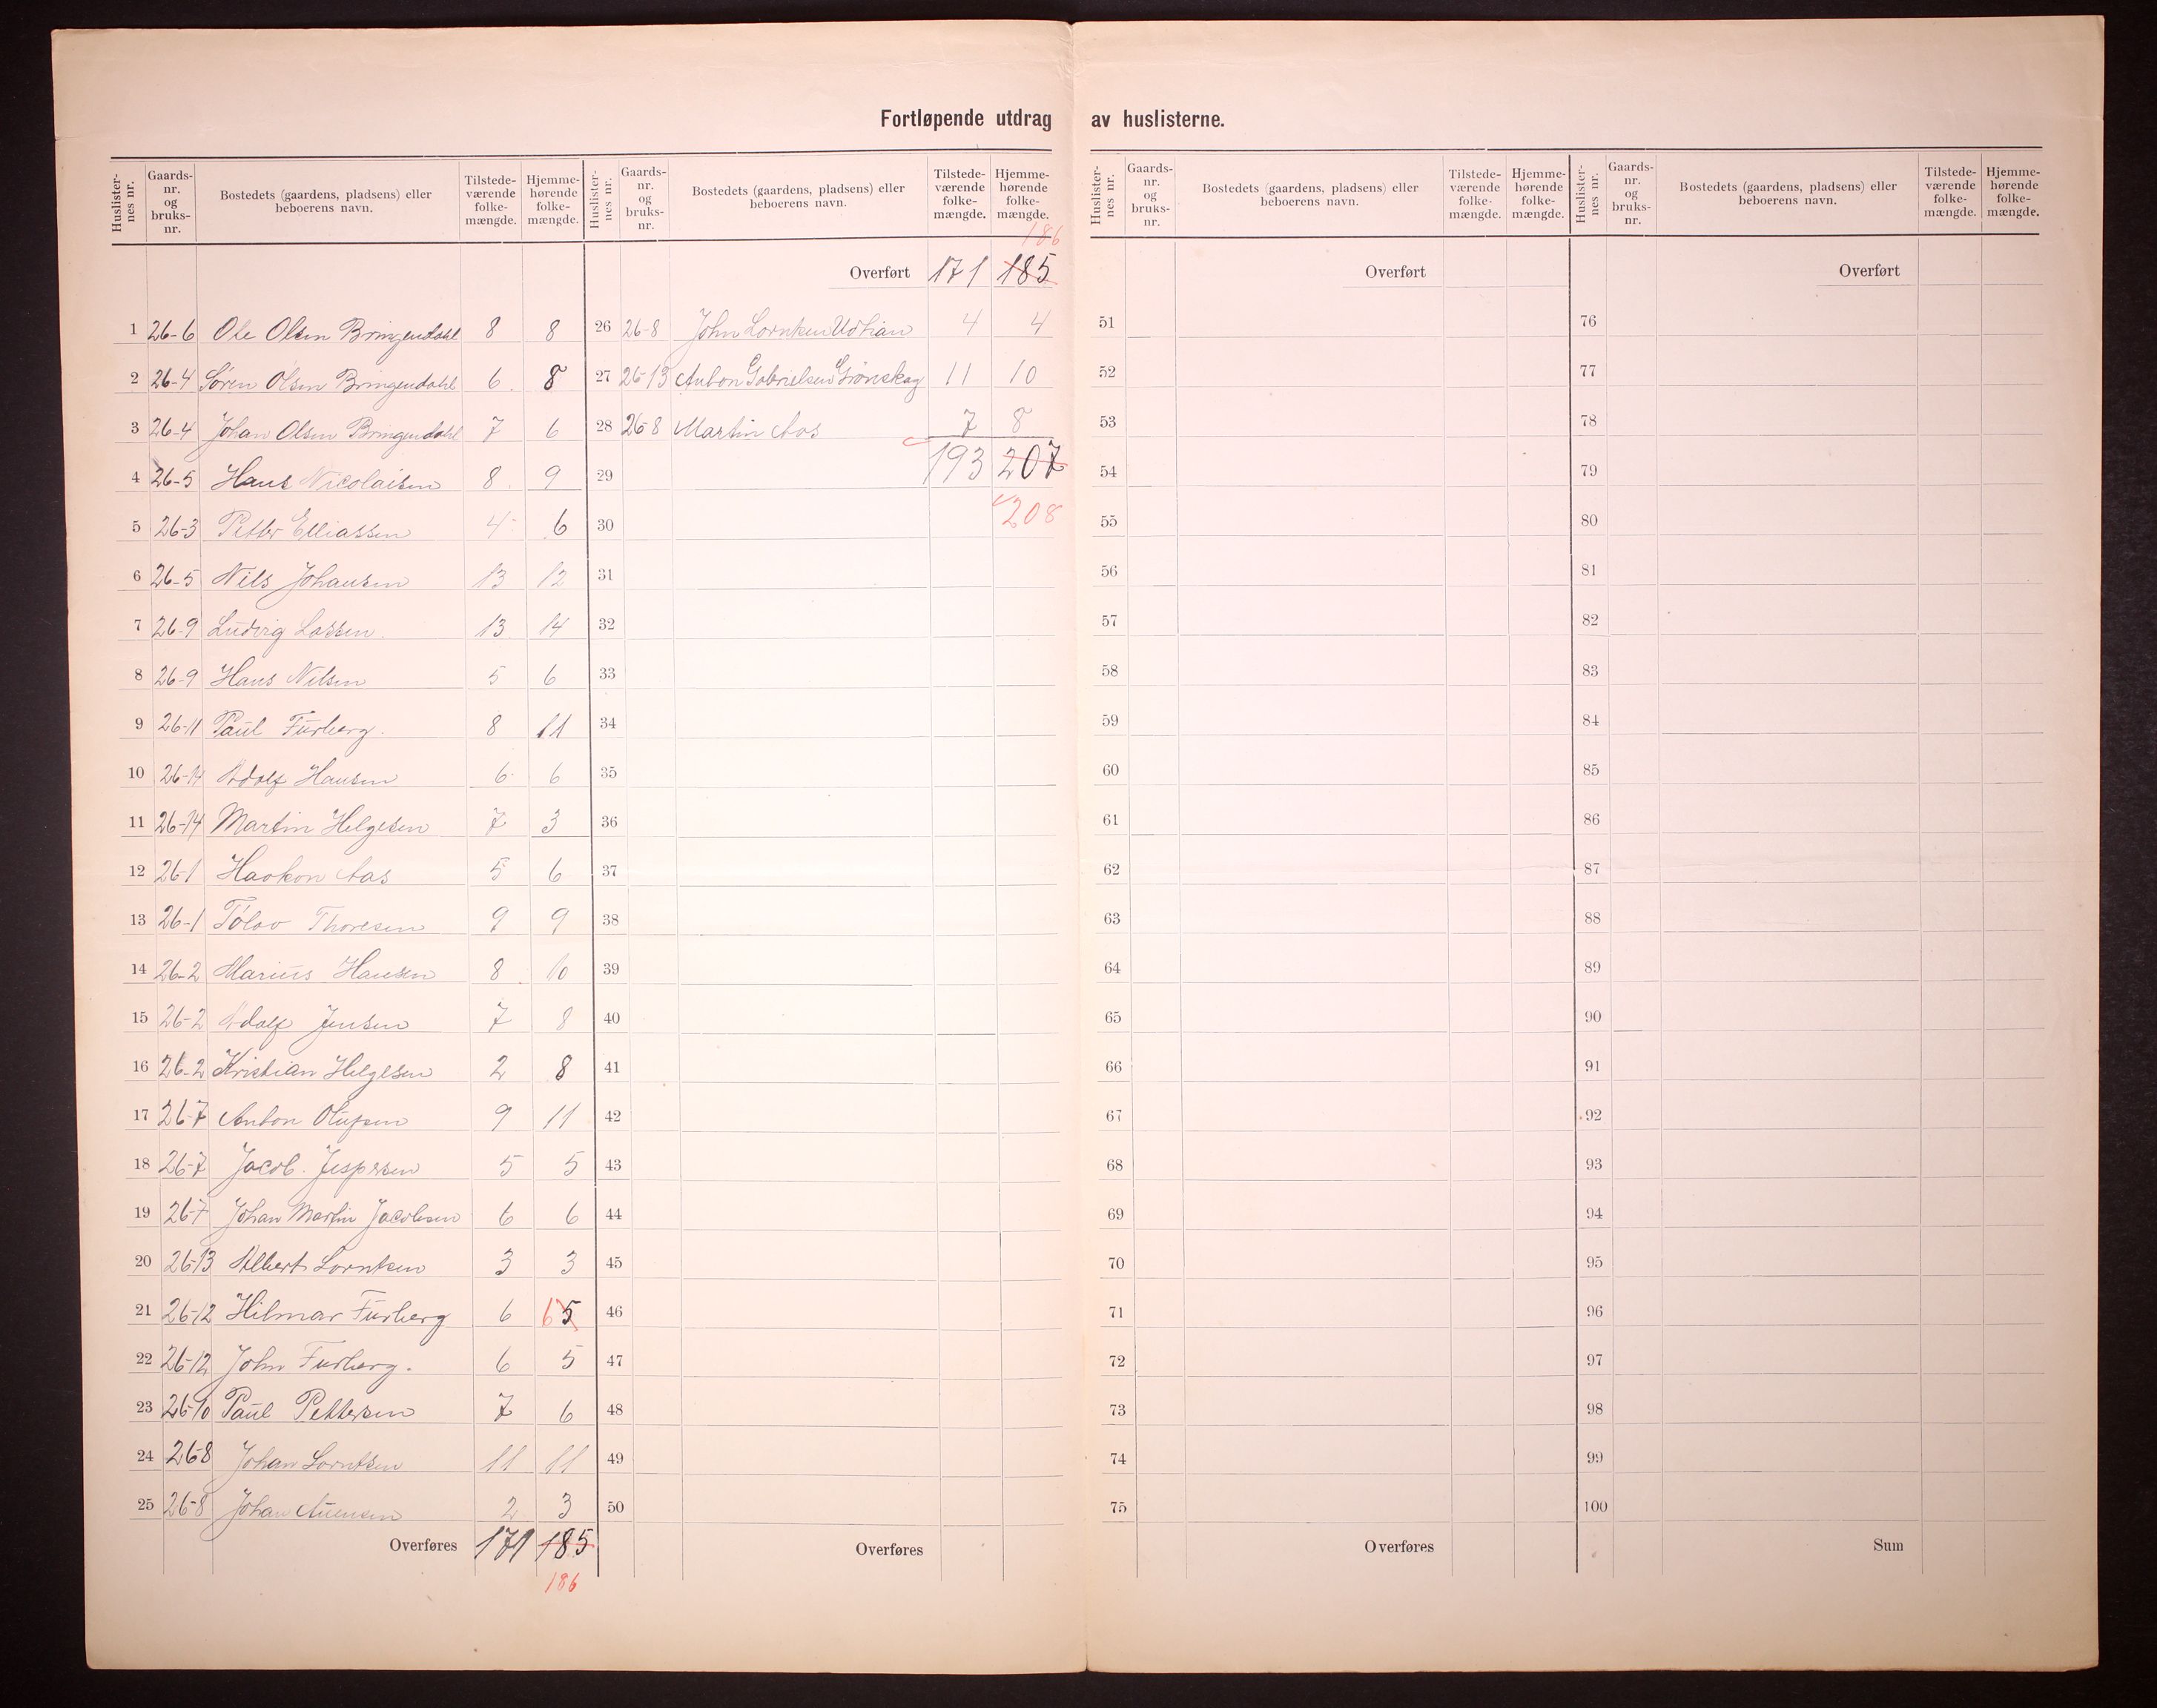 Fortløpende utdrag av huslisterne.
Huslisternes nr. Gaards-nr. og bruks-nr. Bostedets (gaardens, pladsens) eller beboerens navn. Tilstedeværende folkemængde. Hjemmehørende folkemængde.
1 26-6 Ole Olsen Bringendahl 8 8
2 26-4 Søren Olsen Bringendahl 6 8
3 26-4 Johan Olsen Bringendahl 7 6
4 26-5 Hans Nicolaisen 8 9
5 26-3 Petter Elliassen 4 6
6 26-5 Nils Johansen 13 12
7 26-9 Ludvig Lassen 13 14
8 26-9 Hans Nilsen 5 6
9 26-11 Paul Furberg. 8 11
10 26-14 Adolf Hansen 6 6
11 26-14 Martin Helgesen 7 3
12 26-1 Haakon Aas 5 6
13 26-1 Tølov Thoresen 9 9
14 26-2 Marius Hansen 8 10
15 26-2 Adolf Jensen 7 8
16 26-2 Kristian Helgesen 2 8
17 26-7 Anton Olufsen 9 11
18 26-7 Jacob Jespersen 5 5
19 26-7 Johan Martin Jacobsen 6 6
20 26-13 Albert Lorntsen 3 3
21 26-12 Hilmar Furberg 6 6 5
22 26-12 John Furberg. 6 5
23 26-10 Paul Pettersen 7 6
24 26-8 Johan Lorntsen 11 11
25 26-8 Johan 2 3
Overføres 171 185
186
Huslisternes nr. Gaards-nr. og bruks-nr. Bostedets (gaardens, pladsens) eller beboerens navn. Tilstedeværende folkemængde. Hjemmehørende folkemængde.
186
Overført 171 185
26 26-8 John Lorntsen 4 4
27 26-13 Anton Gabrielsen Grønskag 11 10
28 26-8 Martin Aas 7 8
29 193 207
30 208
31
32
33
34
35
36
37
38
39
40
41
42
43
44
45
46
47
48
49
50
Overføres
Huslisternes nr. Gaards-nr. og bruks-nr. Bostedets (gaardens, pladsens) eller beboerens navn. Tilstedeværende folkemængde. Hjemmehørende folkemængde.
Overført
51
52
53
54
55
56
57
58
59
60
61
62
63
64
65
66
67
68
69
70
71
72
73
74
75
Overføres
Huslisternes nr. Gaards-nr. og bruks-nr. Bostedets (gaardens, pladsens) eller beboerens navn. Tilstedeværende folkemængde. Hjemmehørende folkemængde.
Overført
76
77
78
79
80
81
82
83
84
85
86
87
88
89
90
91
92
93
94
95
96
97
98
99
100
Sum